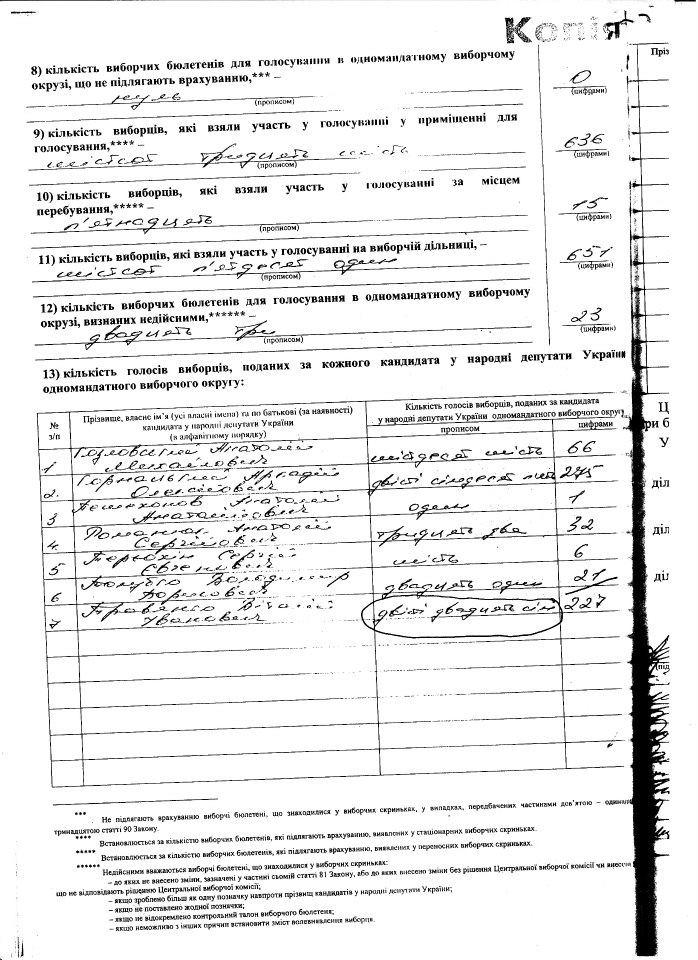 Копія
8) кількість виборчих бюлетенів для голосування в одномандатному виборчому
округзі, що не підлягають врахуванню,*** –
нуль
0
(прописом)
(цифрами)
9) кількість виборців, які взяли участь у голосуванні у приміщенні для
голосування,**** –
шістсот тридцять шість
636
(прописом)
(цифрами)
10) кількість виборців, які взяли участь у голосуванні за місцем
перебування,***** –
п'ятнадцять
15
(прописом)
(цифрами)
11) кількість виборців, які взяли участь у голосуванні на виборчій дільниці, –
шістсот п'ятдесят один
651
(прописом)
(цифрами)
12) кількість виборчих бюлетенів для голосування в одномандатному виборчому
окрузі, визнаних недійсними,****** –
двадцять три
23
(прописом)
(цифрами)
13) кількість голосів виборців, поданих за кожного кандидата у народні депутати України
одномандатного виборчого округу:
№ з/п
Прізвище, власне ім'я (усі власні імена) та по батькові (за наявності)
кандидата у народні депутати України
(в алфавітному порядку)
Кількість голосів виборців, поданих за кандидата
у народні депутати України одномандатного виборчого округу
прописом
цифрами
1 Анатолій
Михайлович
шістдесят шість 66
2. Аркадій
Олексійович
двісті сімдесят п'ять 275
3 Анатолій
Анатолійович
один 1
4 Романюк Анатолій
Сергійович
тридцять два 32
5 Сергій
Євгенович
шість 6
6 Володимир
Борисович
двадцять один 21
7 Віталій
Іванович
двісті двадцять сім 227
*** Не підлягають врахуванню виборчі бюлетені, що знаходилися у виборчих скриньках, у випадках, передбачених частинами дев'ятою –
тринадцятою статті 90 Закону.
**** Встановлюється за кількістю виборчих бюлетенів, які підлягають врахуванню, виявлених у стаціонарних виборчих скриньках.
***** Встановлюється за кількістю виборчих бюлетенів, які підлягають врахуванню, виявлених у переносних виборчих скриньках.
****** Недійсними вважаються виборчі бюлетені, що знаходилися у виборчих скриньках:
– до яких не внесено зміни, зазначені у частині сьомій статті 81 Закону, або до яких внесено зміни без рішення Центральної виборчої комісії чи внесені
що не відповідають рішенню Центральної виборчої комісії;
– якщо зроблено більш як одну позначку навпроти прізвищ кандидатів у народні депутати України;
– якщо не поставлено жодної позначки;
– якщо не відокремлено контрольний талон виборчого бюлетеня;
– якщо неможливо з інших причин встановити зміст волевиявлення виборця.